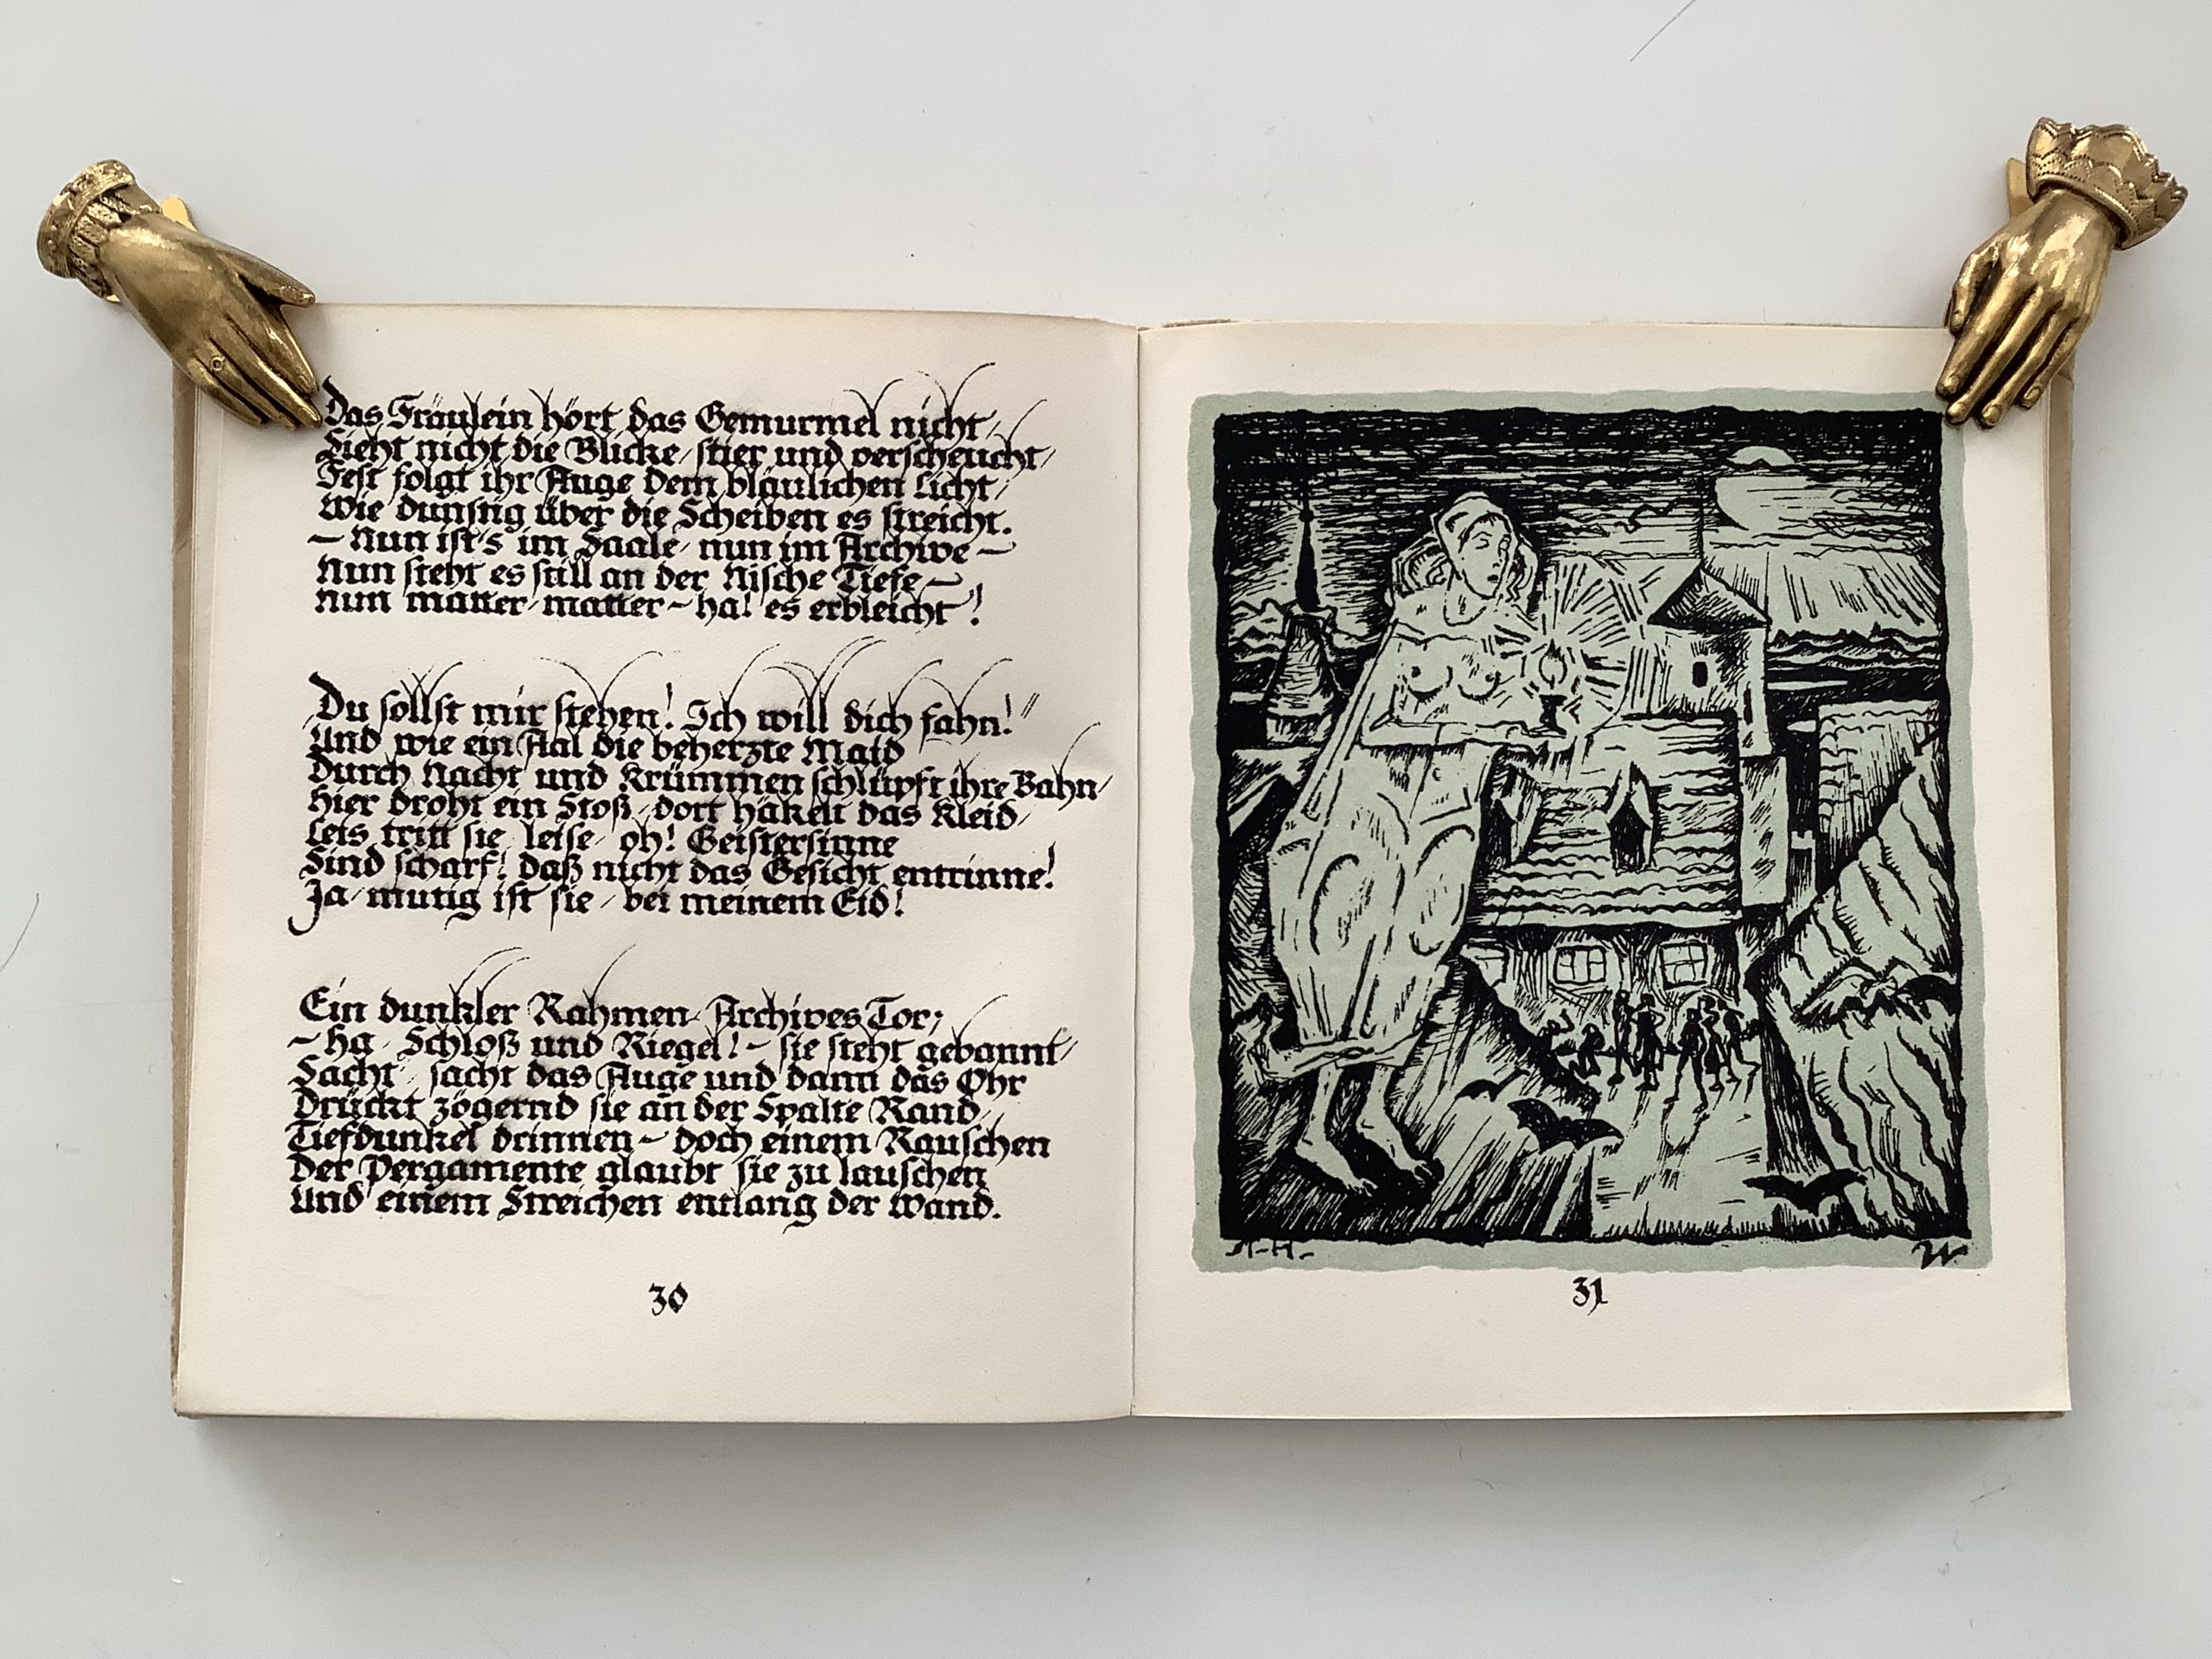 Das Fräulein hört das Gemurmel nicht /
Sieht nicht die Blicke / stier und verscheucht /
Fest folgt ihr Auge dem bläulichen Licht /
Wie dunstig über die Scheiben es streicht.
– Nun ist's im Saale / nun im Archive –
Nun steht es still an der Nische Tiefe –
nun matter / matter – ha! es erbleicht!
„Du sollst mir stehen! Ich will dich fahn!“
Und wie ein Aal die beherzte Maid
Durch Nacht und Krümmen schlüpft ihre Bahn /
Hier droht ein Stoß / dort häkelt das Kleid /
Leis tritt sie / leise / oh! Geistersinne
Sind scharf! daß nicht das Gesicht entrinne!
Ja / mutig ist sie / bei meinem Eid!
Ein dunkler Rahmen / Archives Tor;
– ha / Schloß und Riegel! – sie steht gebannt /
Sacht / sacht das Auge und dann das Ohr
Drückt zögernd sie an der Spalte Rand /
Tiefdunkel drinnen – doch einem Rauschen
Der Pergamente glaubt sie zu lauschen
Und einem Streichen entlang der Wand.
30
A-H-
W
31